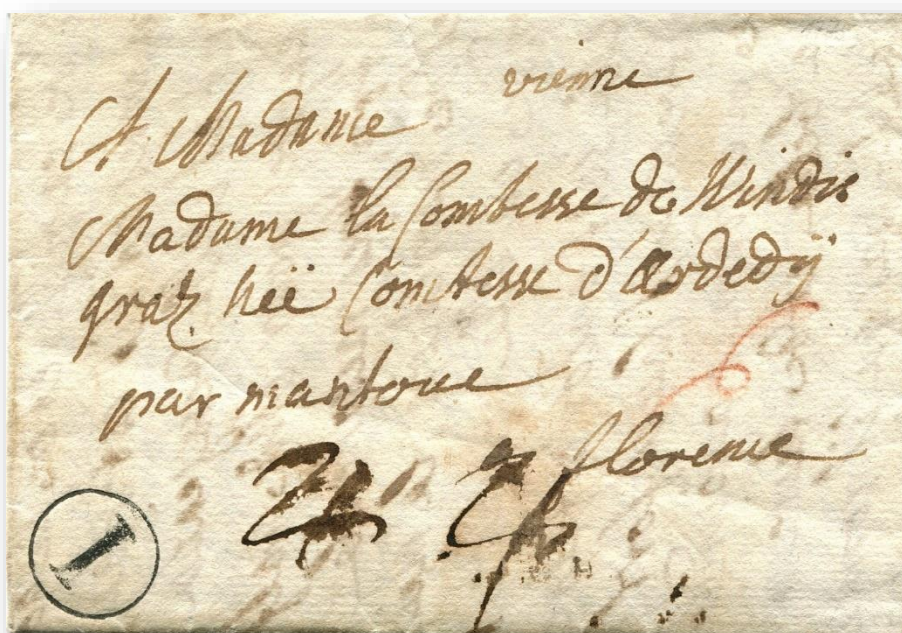 vienne
A Madame
Madame la Comtesse de Windis
graz neë Comtesse d'Erdedÿ
par mantoue
florence
I